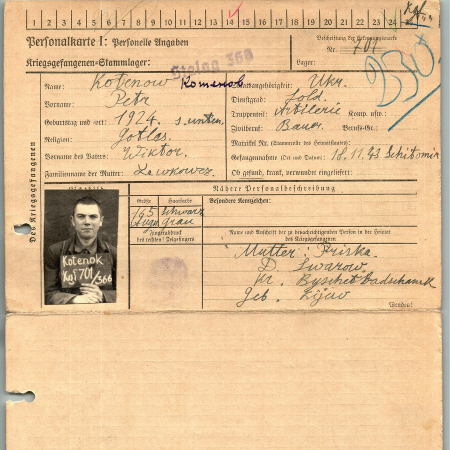 1 2 3 4 5 6 7 8 9 10 11 12 13 14 15 16 17 18 19 20 21 22 23 24
Personalkarte I: Personelle Angaben
Beschriftung der Erkennungsmarke
Nr. 701
Kriegsgefangenen-Stammlager: Stalag 358
Lager:
230
Des Kriegsgefangenen
Name: Kotenow
Staatsangehörigkeit: Ukr.
Vorname: Petr
Dienstgrad: Sold.
Geburtstag und -ort: 1924.
Truppenteil: Artillerie Komp. usw.:
Religion:
Zivilberuf: Bauer. Berufs-Gr.:
Vorname des Vaters: Wiktor.
Matrikel Nr. (Stammrolle des Heimatstaates):
Gefangennahme (Ort und Datum): 18.11.43 Schitomir
Familienname der Mutter: Lewkowez
Ob gesund, krank, verwundet eingeliefert:
Nähere Personalbeschreibung
Größe Haarfarbe
165 schwarz
Besondere Kennzeichen:
Fingerabdruck
des rechten Zeigefingers
Name und Anschrift der zu benachrichtigenden Person in der Heimat
des Kriegsgefangenen
Kotenok
Kgf 701/
366
Mutter: Priska.
D. Swarow
Kr.
Geb. Kijuw
Wenden!